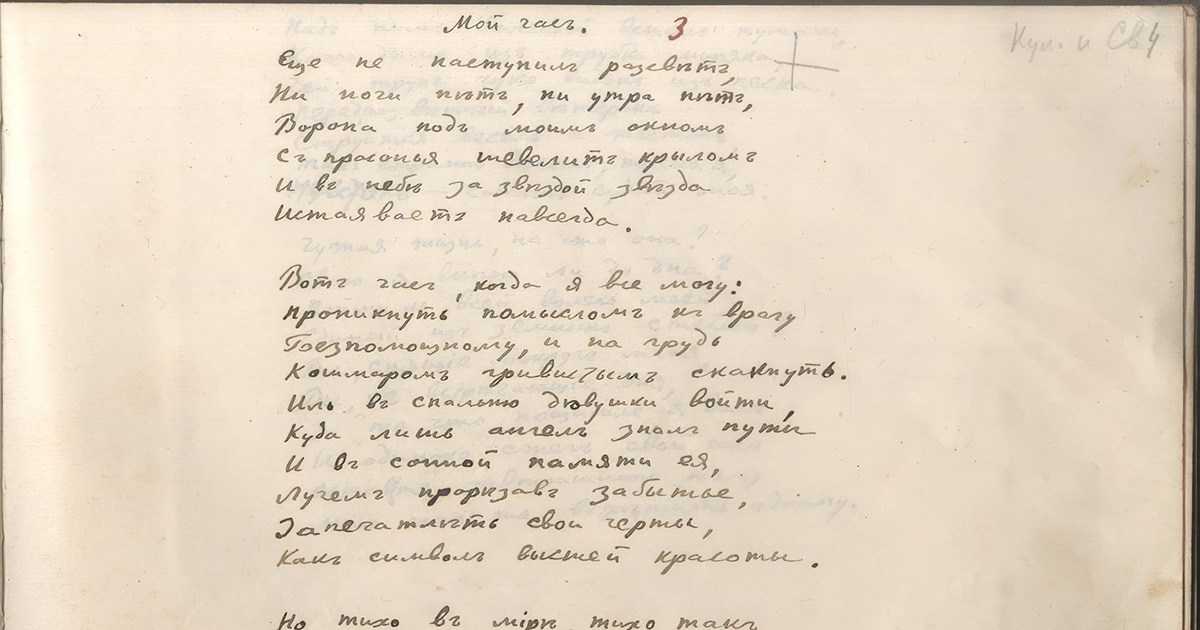 Мой часъ. 3
Кул. и СВ 4
Еще не наступилъ разсвѣтъ,
Ни ночи нѣтъ, ни утра нѣтъ,
Ворона подъ моимъ окномъ
Съ просонья шевелитъ крыломъ
И въ небѣ за звѣздой звѣзда
Истаяваетъ навсегда.
Вотъ часъ, когда я все могу:
Проникнуть помысломъ къ врагу
Безпомощному, и на грудь
Кошмаромъ гривистымъ скакнуть.
Иль въ спальню дѣвушки войти,
Куда лишь ангелъ зналъ пути
И въ сонной памяти ея,
Лучемъ прорѣзавъ забытье,
Запечатлѣть свои черты,
Какъ символъ высшей красоты.
Но тихо въ мірѣ, тихо такъ